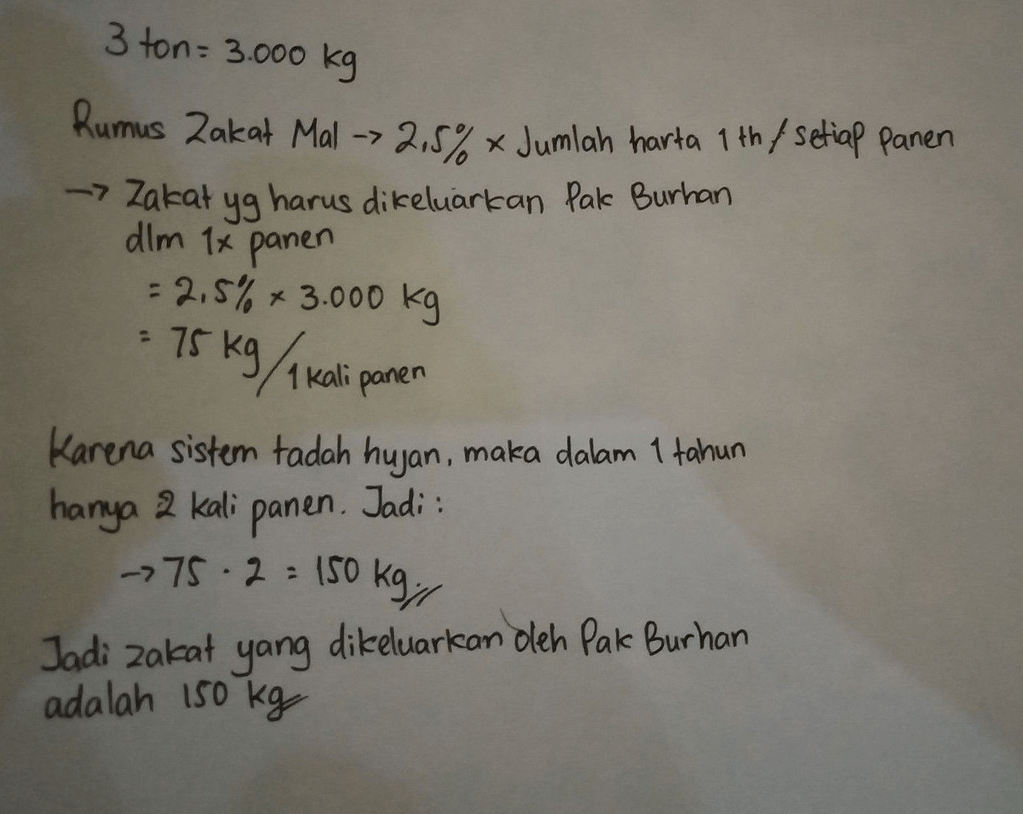 3 ton = 3.000 kg
Rumus Zakat Mal -> 2,5% x Jumlah harta 1 th / setiap panen
-> Zakat yg harus dikeluarkan Pak Burhan
dlm 1x panen
= 2,5% x 3.000 kg
= 75 kg/1 kali panen
Karena sistem tadah hujan, maka dalam 1 tahun
hanya 2 kali panen. Jadi :
-> 75 . 2 = 150 kg //
Jadi zakat yang dikeluarkan oleh Pak Burhan
adalah 150 kg